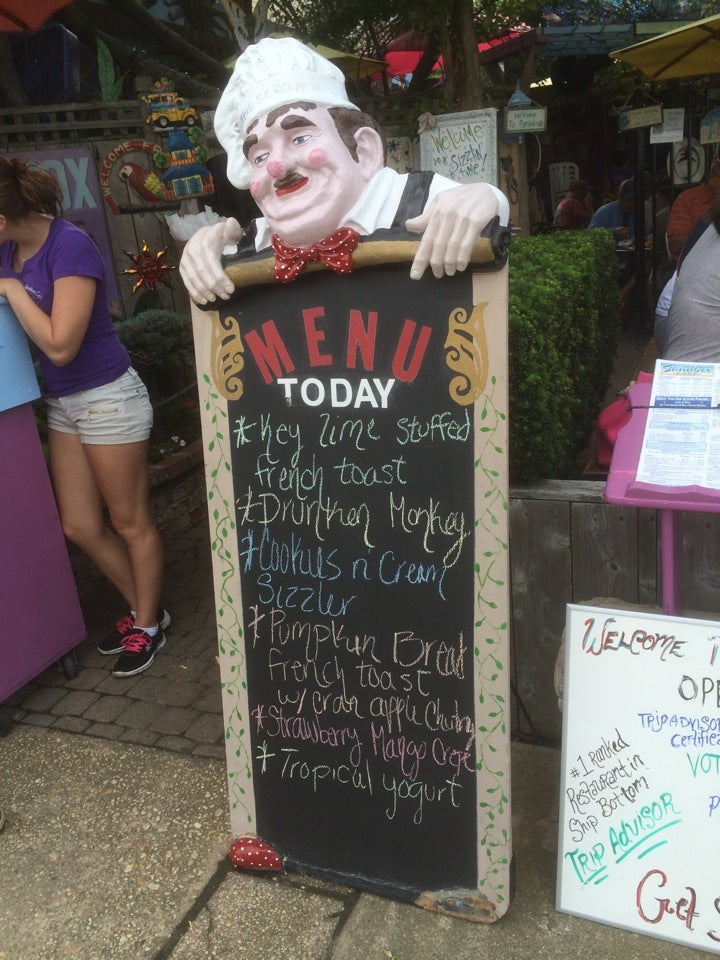 WELCOME
Sizzlin'
Welcome
To Paradise
WELCOME
OX
MENU
TODAY
* Key lime stuffed
french toast
* Drunken Monkey
* Cookies n Cream
Sizzler
* Pumpkin Bread
french toast
w/ cran apple Chutney
* Strawberry Mango Crepe
* Tropical yogurt
Sandbox
WELCOME
OPE
TripAdvisor
Certifie
VOT
#1 Ranked
Restaurant in
Ship Bottom
TRIP ADVISOR
Get